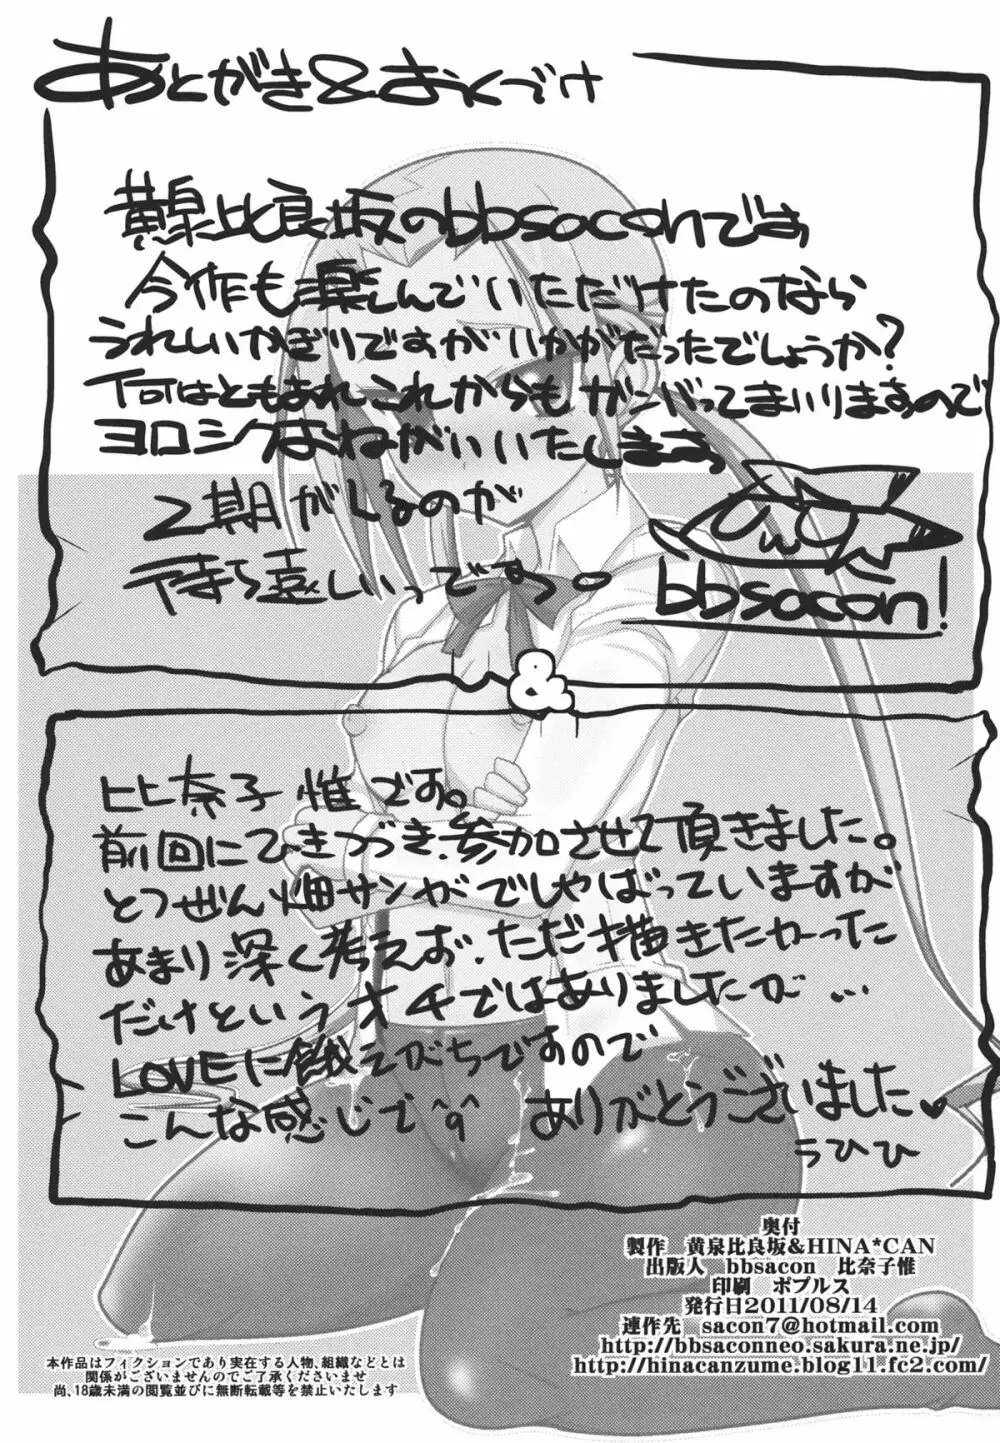 あとがき&おくづけ
黄泉比良坂のbbsaconです
今作も楽しんでいただけたのなら
うれしいかぎりですがいかがだったでしょうか?
何はともあれこれからもガンバってまいりますので
ヨロシクおねがいいたします。
2期がくるのが
待ち遠しいっですっ。
bbsacon!
&
比奈子 惟です。
前回にひきつづき、参加させて頂きました。
とつぜん畑サンがでしゃばっていますが
あまり深く考えお、ただ描きたかった
だけというオチではありましたが…
LOVEに餓えがちですので
こんな感じで^q^ ありがとうございました♥
うひひ
奥付
製作 黄泉比良坂&HINA*CAN
出版人 bbsacon 比奈子惟
印刷 ポプルス
発行日2011/08/14
連作先 sacon7@hotmail.com
http://bbsaconneo.sakura.ne.jp/
http://hinacanzume.blog11.fc2.com/
本作品はフィクションであり実在する人物、組織などとは
関係がございませんのでご了承くださいませ
尚、18歳未満の閲覧並びに無断転載等を禁止いたします